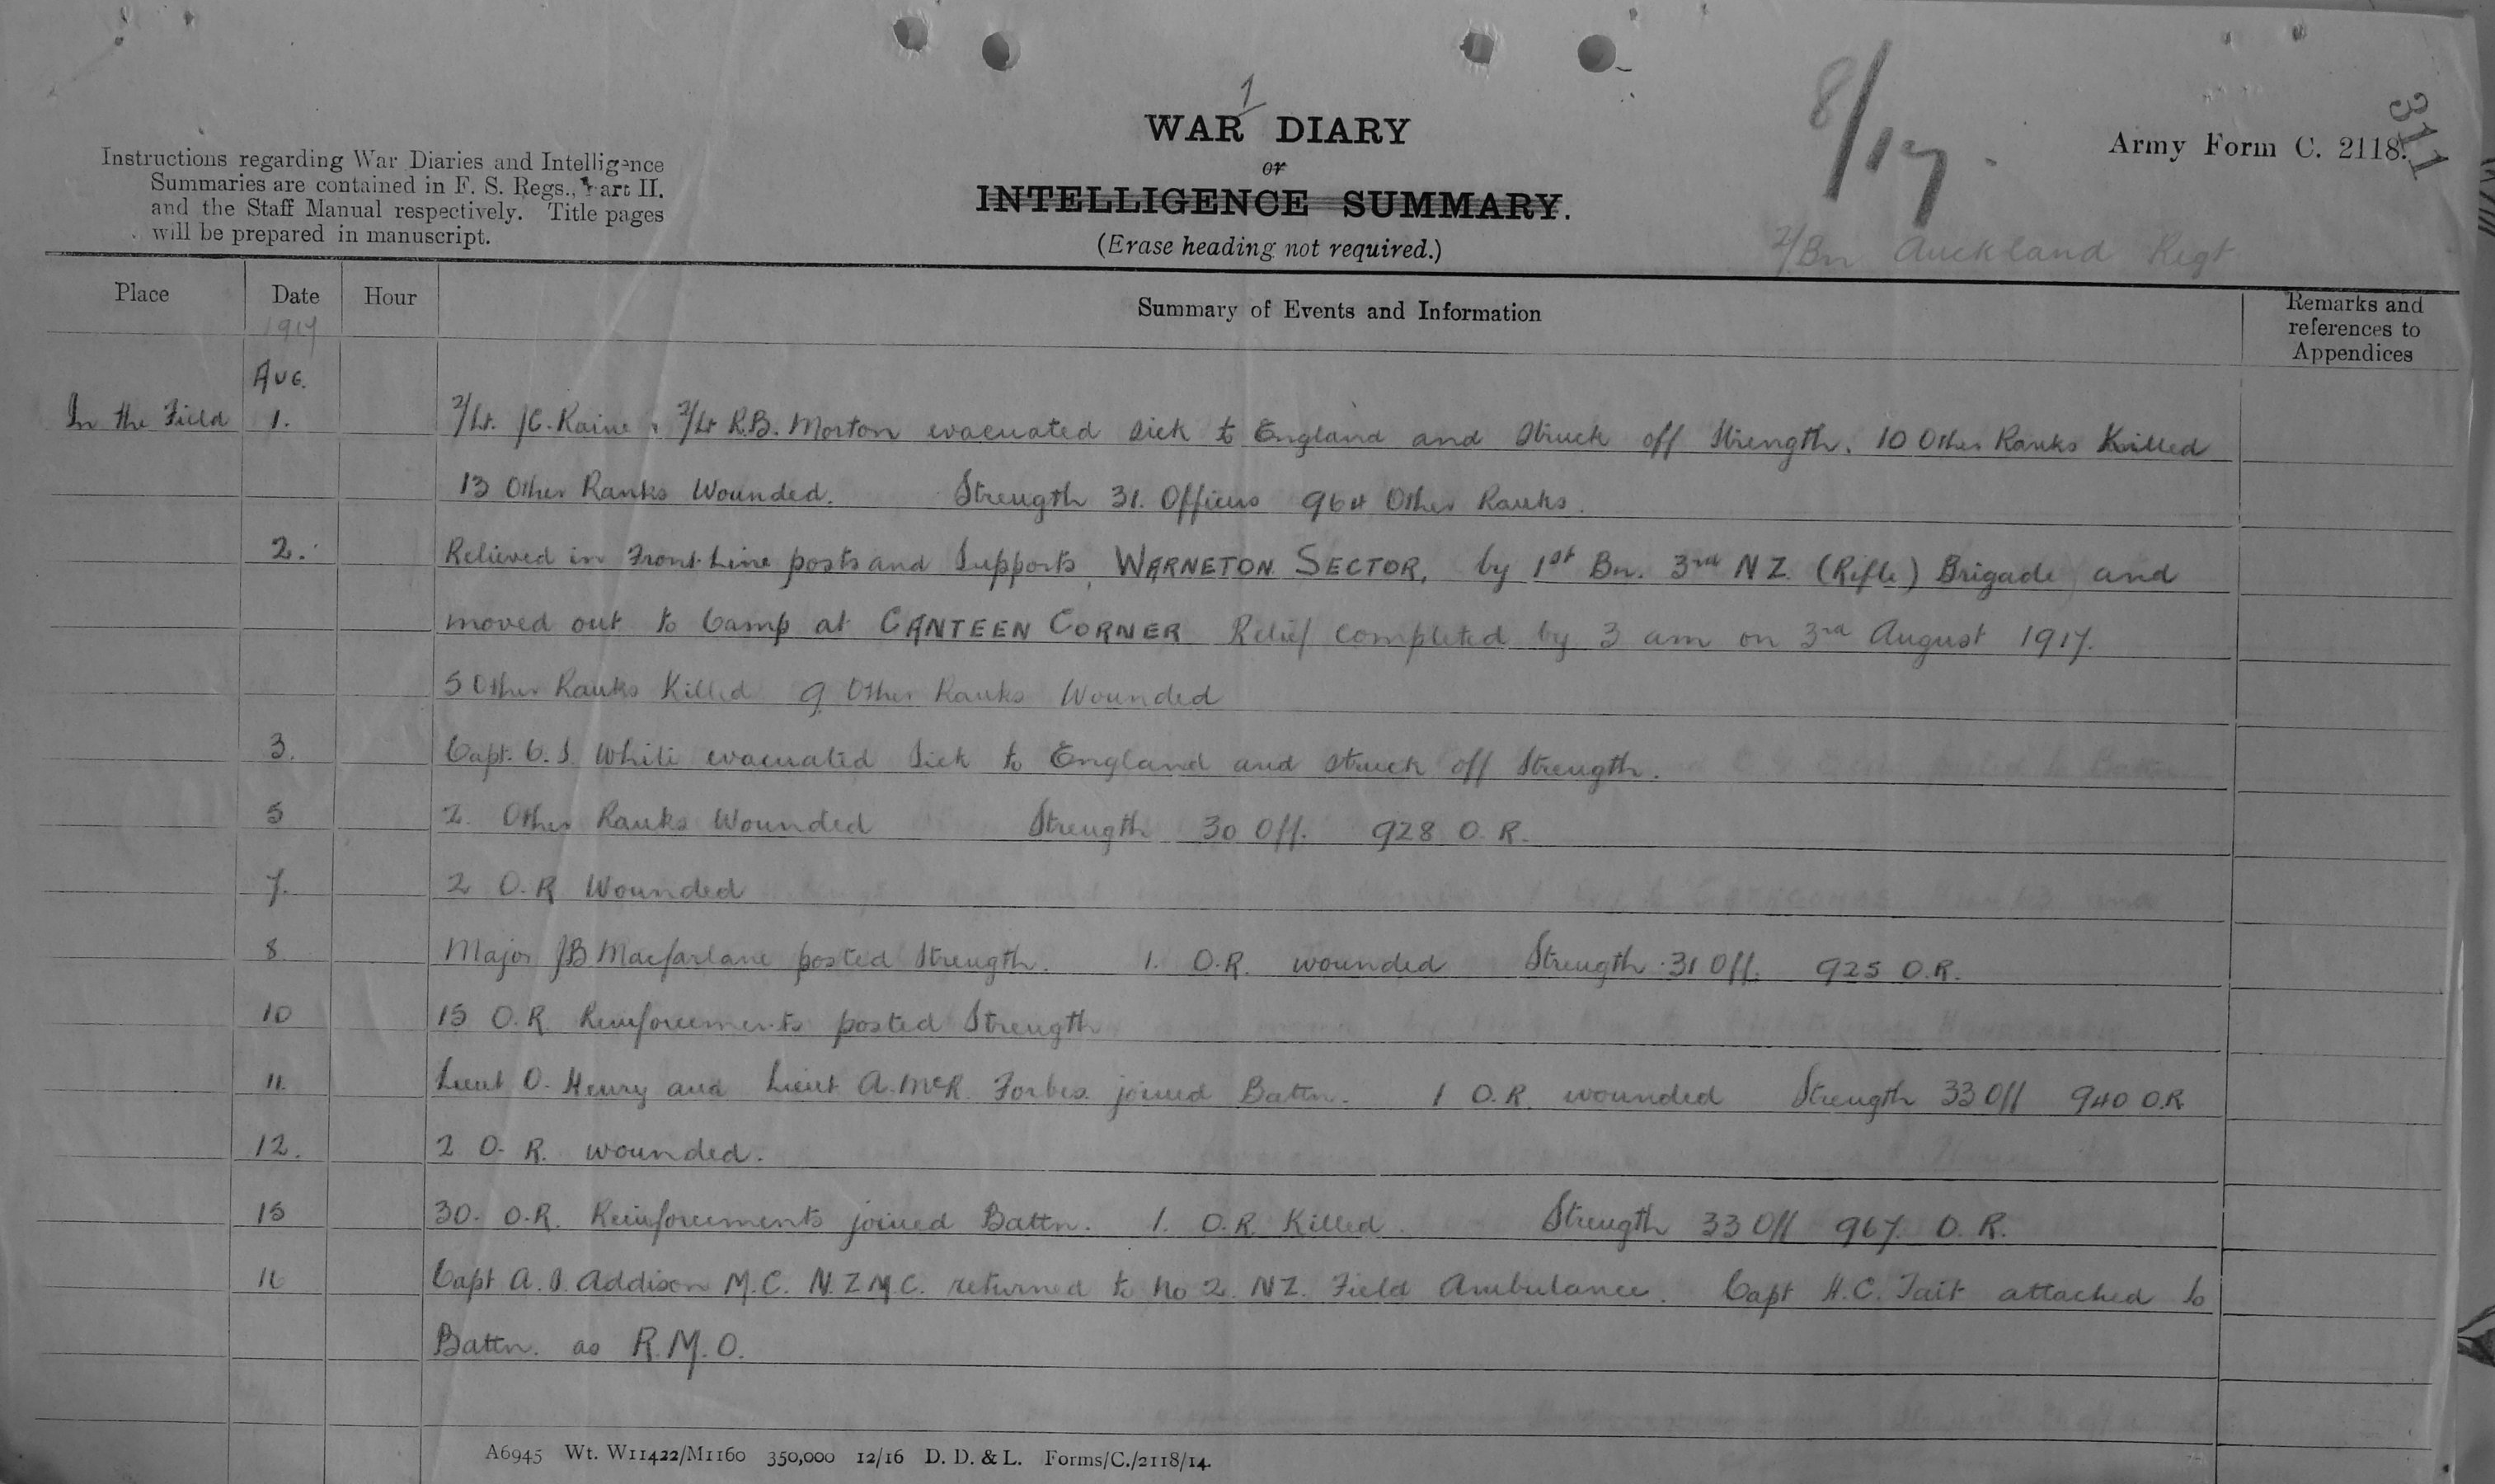 1
WAR DIARY
or
INTELLIGENCE SUMMARY.
(Erase heading not required.)
Instructions regarding War Diaries and Intelligence
Summaries are contained in F. S. Regs., Part II.
and the Staff Manual respectively. Title pages
will be prepared in manuscript.
8/17.
Army Form C. 2118.
311
2/Bn Auckland Regt
Place Date Hour Summary of Events and Information Remarks and references to Appendices
1917
Aug.
In the Field 1. 2/Lt. JC. Kaine & 2/Lt R.B. Morton evacuated sick to England and struck off Strength. 10 Other Ranks Killed
13 Other Ranks Wounded. Strength 31. Officers 964 Other Ranks.
2. Relieved in Front Line posts and Supports, WARNETON SECTOR, by 1st Bn. 3rd N Z. (Rifle) Brigade and
moved out to Camp at CANTEEN CORNER Relief completed by 3 am on 3rd August 1917.
5 Other Ranks Killed 9 Other Ranks Wounded
3. Capt. C. S. White evacuated Sick to England and struck off Strength.
5 2. Other Ranks Wounded Strength 30 Off. 928 O. R.
7. 2 O. R Wounded
8 Major JB Macfarlane posted Strength. 1. O.R. wounded Strength 31 Off. 925 O.R.
10 15 O.R. Reinforcements posted Strength
11. Lieut O. Henry and Lieut A. McR. Forbes joined Battn. 1 O.R. wounded Strength 33 Off 940 O.R
12. 2 O. R. wounded.
15 30. O.R. Reinforcements joined Battn. 1. O.R. Killed. Strength 33 Off 967. O. R.
16 Capt A. S. Addison M.C. N.Z.M.C. returned to No 2. NZ. Field Ambulance. Capt H.C. Tait attached to
Battn. as R.M.O.
A6945 Wt. W11422/M1160 350,000 12/16 D. D. & L. Forms/C./2118/14.